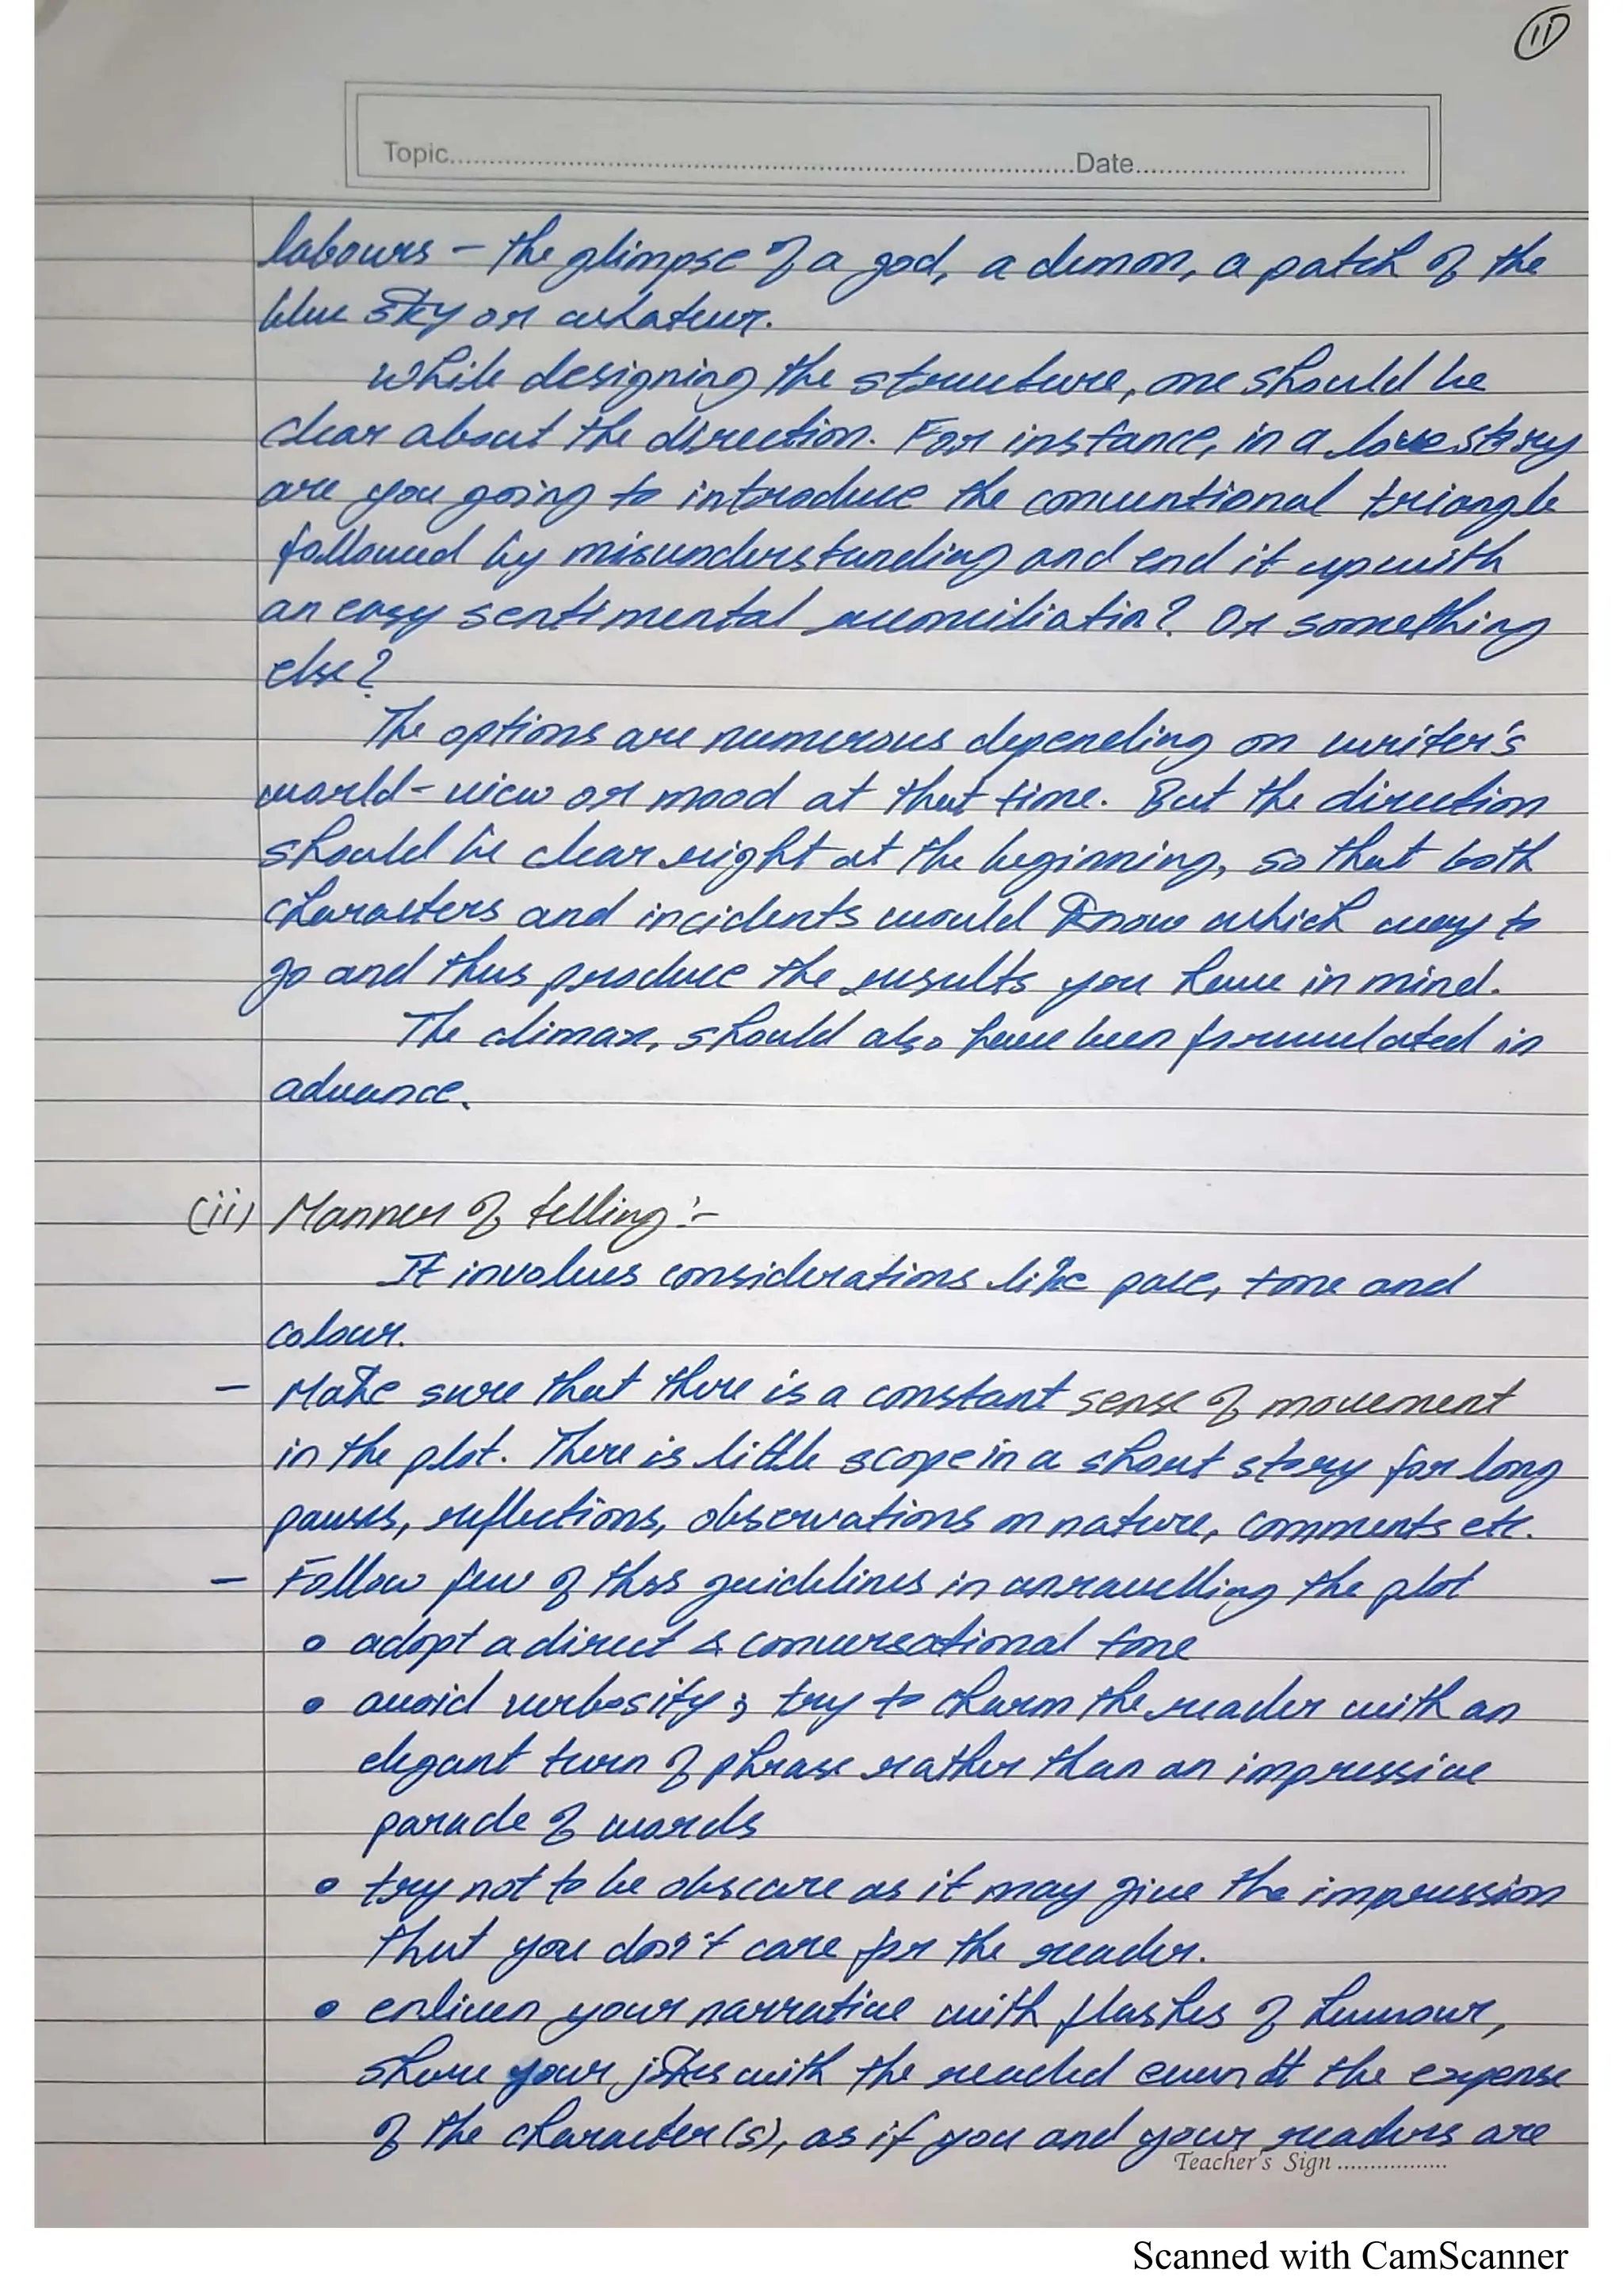 11
Topic.....Date.....
labours - the glimpse of a god, a demon, a patch of the
blue sky or whatever.
While designing the structure, one should be
clear about the direction. For instance, in a love story
are you going to introduce the conventional triangle
followed by misunderstanding and end it up with
an easy sentimental reconciliatin? Or something
else?
The options are numerous depending on writer's
world-view or mood at that time. But the direction
should be clear right at the beginning, so that both
characters and incidents would know which way to
go and thus produce the results you have in mind.
The climax, should also have been formulated in
advance.
(ii) Manner of telling:-
It involves considerations like pace, tone and
colour.
- Make sure that there is a constant sense of movement
in the plot. There is little scope in a short story for long
pauses, reflections, observations on nature, comments etc.
- Follow few of thss guidelines in unravelling the plot
• adopt a direct & conversational tone
• avoid verbosity; try to charm the reader with an
elegant turn of phrase rather than an impressive
parade of words
• try not to be obscure as it may give the impression
that you don't care for the reader.
• enliven your narrative with flashes of humour,
share your jokes with the readed even at the expense
of the character(s), as if you and your readers are
Teacher's Sign ..................
Scanned with CamScanner